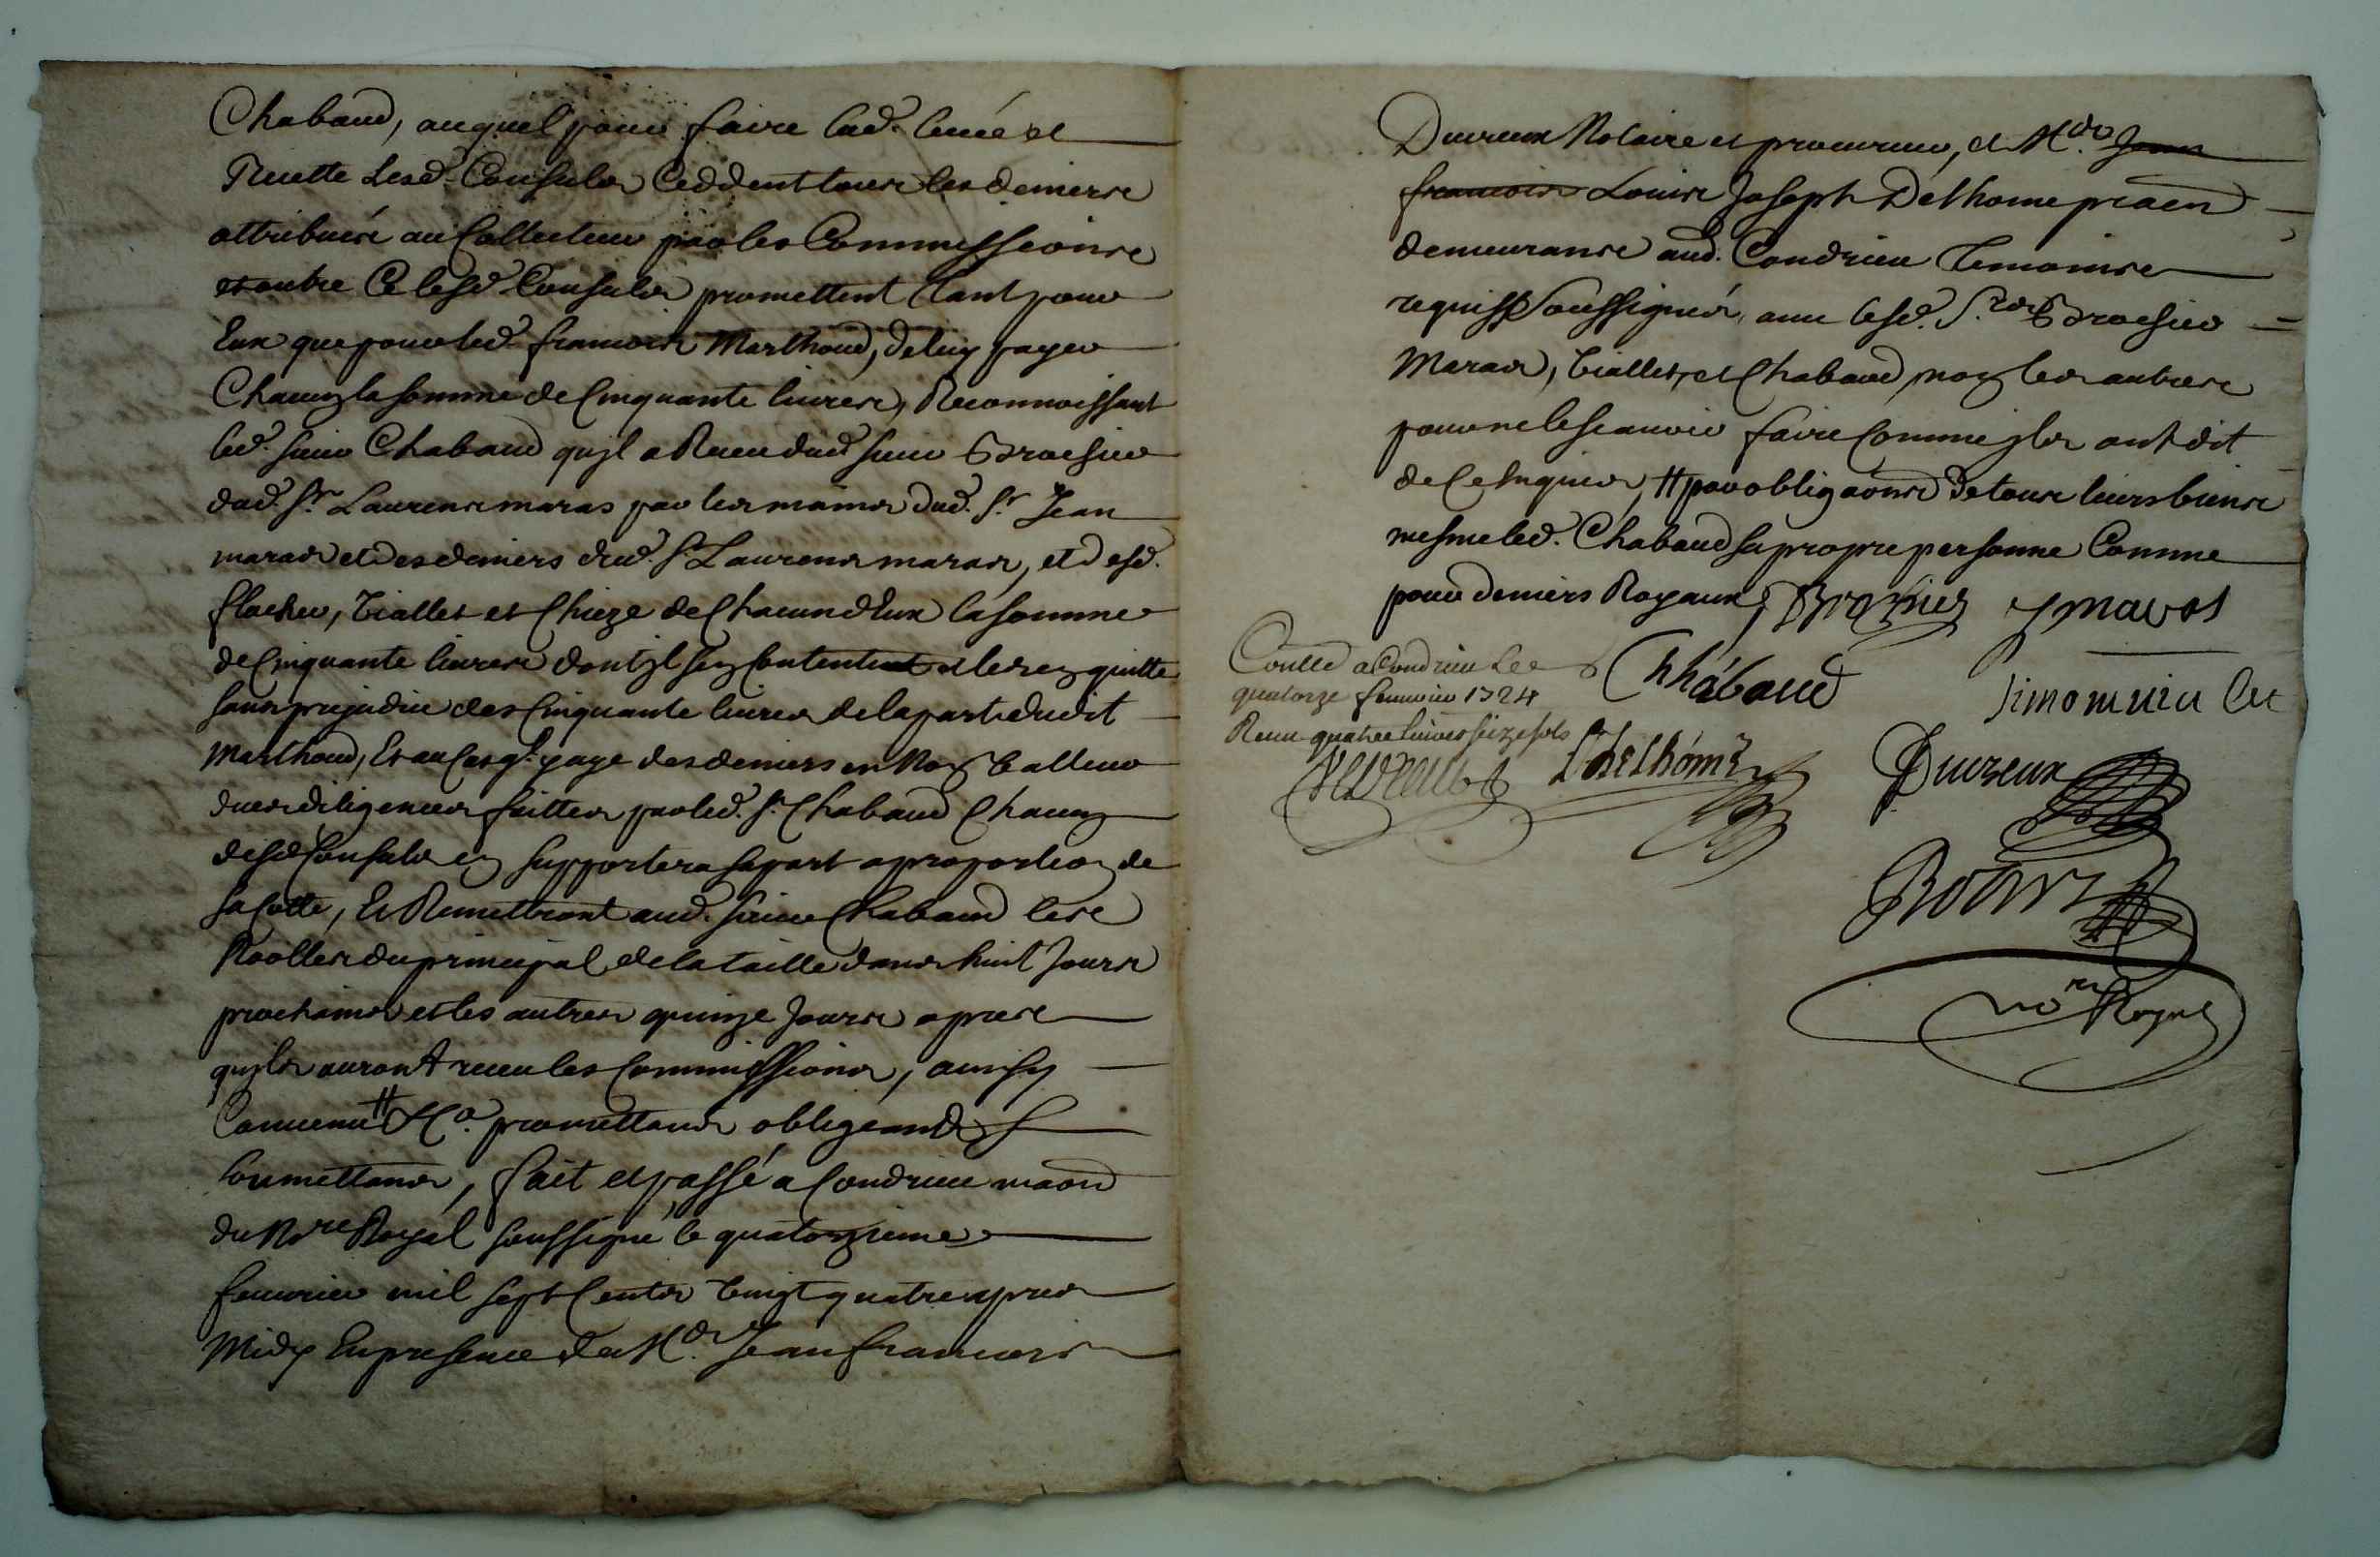 Chabaud, auquel pour faire lad. levée et
Recette Lesd. Consuls Ceddent tous les deniers
attribués au Collecteur par les Commissions
et outre Ce lesd. Consuls promettent tant pour
Eux que pour led. francois Marthoud, de luy payer
Chacung la somme de Cinquante livres, Reconnoissant
led. sieur Chabaud qu'jl a Receu dud. sieur Brossier
dud. Sr. Laurens maras par les mains dud. Sr. Jean
maras et des deniers dud. Sr. Laurens maras, et desd.
flacher, Viallet et Chieze de Chacun d'Eux la somme
de Cinquante livres dont jl sen Contente et les en quitte
sans prejudice des Cinquante livres de la part dudit
Marthoud, Et au Cas qu'jl y aye des deniers en Non Valleur
dues diligences faittes par led. Sr. Chabaud Chacung
desd. Consuls en supportera sa part a proportion de
sa Cotte, Et Remettront aud. sieur Chabaud les
Roolles du principal de la taille dans huit Jours
prochains et les autres quinze Jours apres
qu'jls auront receu les Commissions, ainsy
Convenu # &a. promettans obligeans
soumettans, fait et passé a Condrieu maon
du Nore Royal soussigné le quatorzieme
feuvrier mil sept Cents vingt quatre apres
Midy En presence de Me. Jean francois
Duvreux Notaire et procureur, et Me. Jean
francois Louis Joseph Delhome praen
demeurans aud. Condrieu Temoins
requis Soussignés avec lesd. Srs Brossier
Maras, Viallet, et Chabaud, non les autres
pour ne le scavoir faire Comme jls ont dit
de Ce Enquis, # par obligaons de tous leurs biens
mesme led. Chabaud sa propre personne Comme
pour deniers Royaux, Brossier J maras
Conllé a Condrieu Le
quatorze feuvrier 1724
Receu quatre livres seize sols
Chabaud
L J Delhome
Duvreux
nore Royal